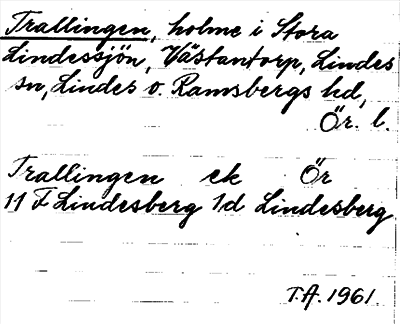 Trallingen, holme i Stora
Lindessjön, Västantorp, Lindes
sn, Lindes o. Ramsbergs hd,
Ör. l.
Trallingen ek Ör
11 F Lindesberg 1d Lindesberg
T.A. 1961.